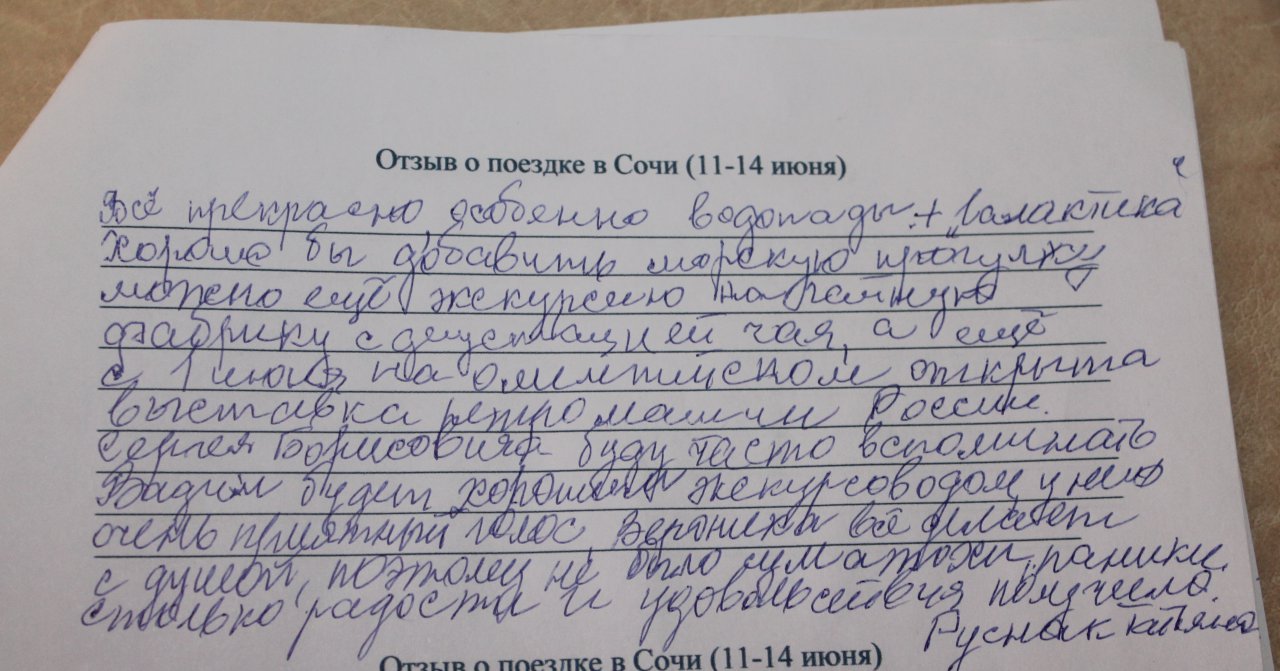 Отзыв о поездке в Сочи (11-14 июня)
Всё прекрасно особенно водопады + "Галактика"
Хорошо бы добавить морскую прогулку
можно ещё экскурсию на чайную
фабрику с дегустацией чая, а ещё
с 1 июня на олимпийском открыта
выставка ретро машин России.
Сергея Борисовича буду часто вспоминать
Вадим будет хорошим экскурсоводом, у него
очень приятный голос, Вероника всё делает
с душой, поэтому не было суматохи, паники,
столько радости и удовольствия получила.
Руснак Татьяна
Отзыв о поездке в Сочи (11-14 июня)